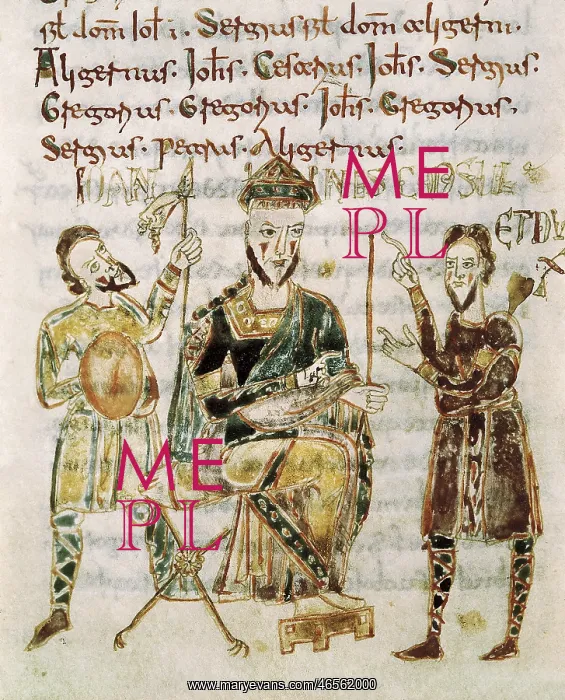 s̅t̅ dom̅ Joh̅ i. Sergius s̅t̅ dom̅ aligerni.
Aligernus. Joh̅s. Cesarius. Joh̅s. Sergius.
Gregorius. Gregorius. Joh̅s. Gregorius.
Sergius. Petrus. Aligernus.
IOAN
ET DV
ME
PL
ME
PL
www.maryevans.com/46562000